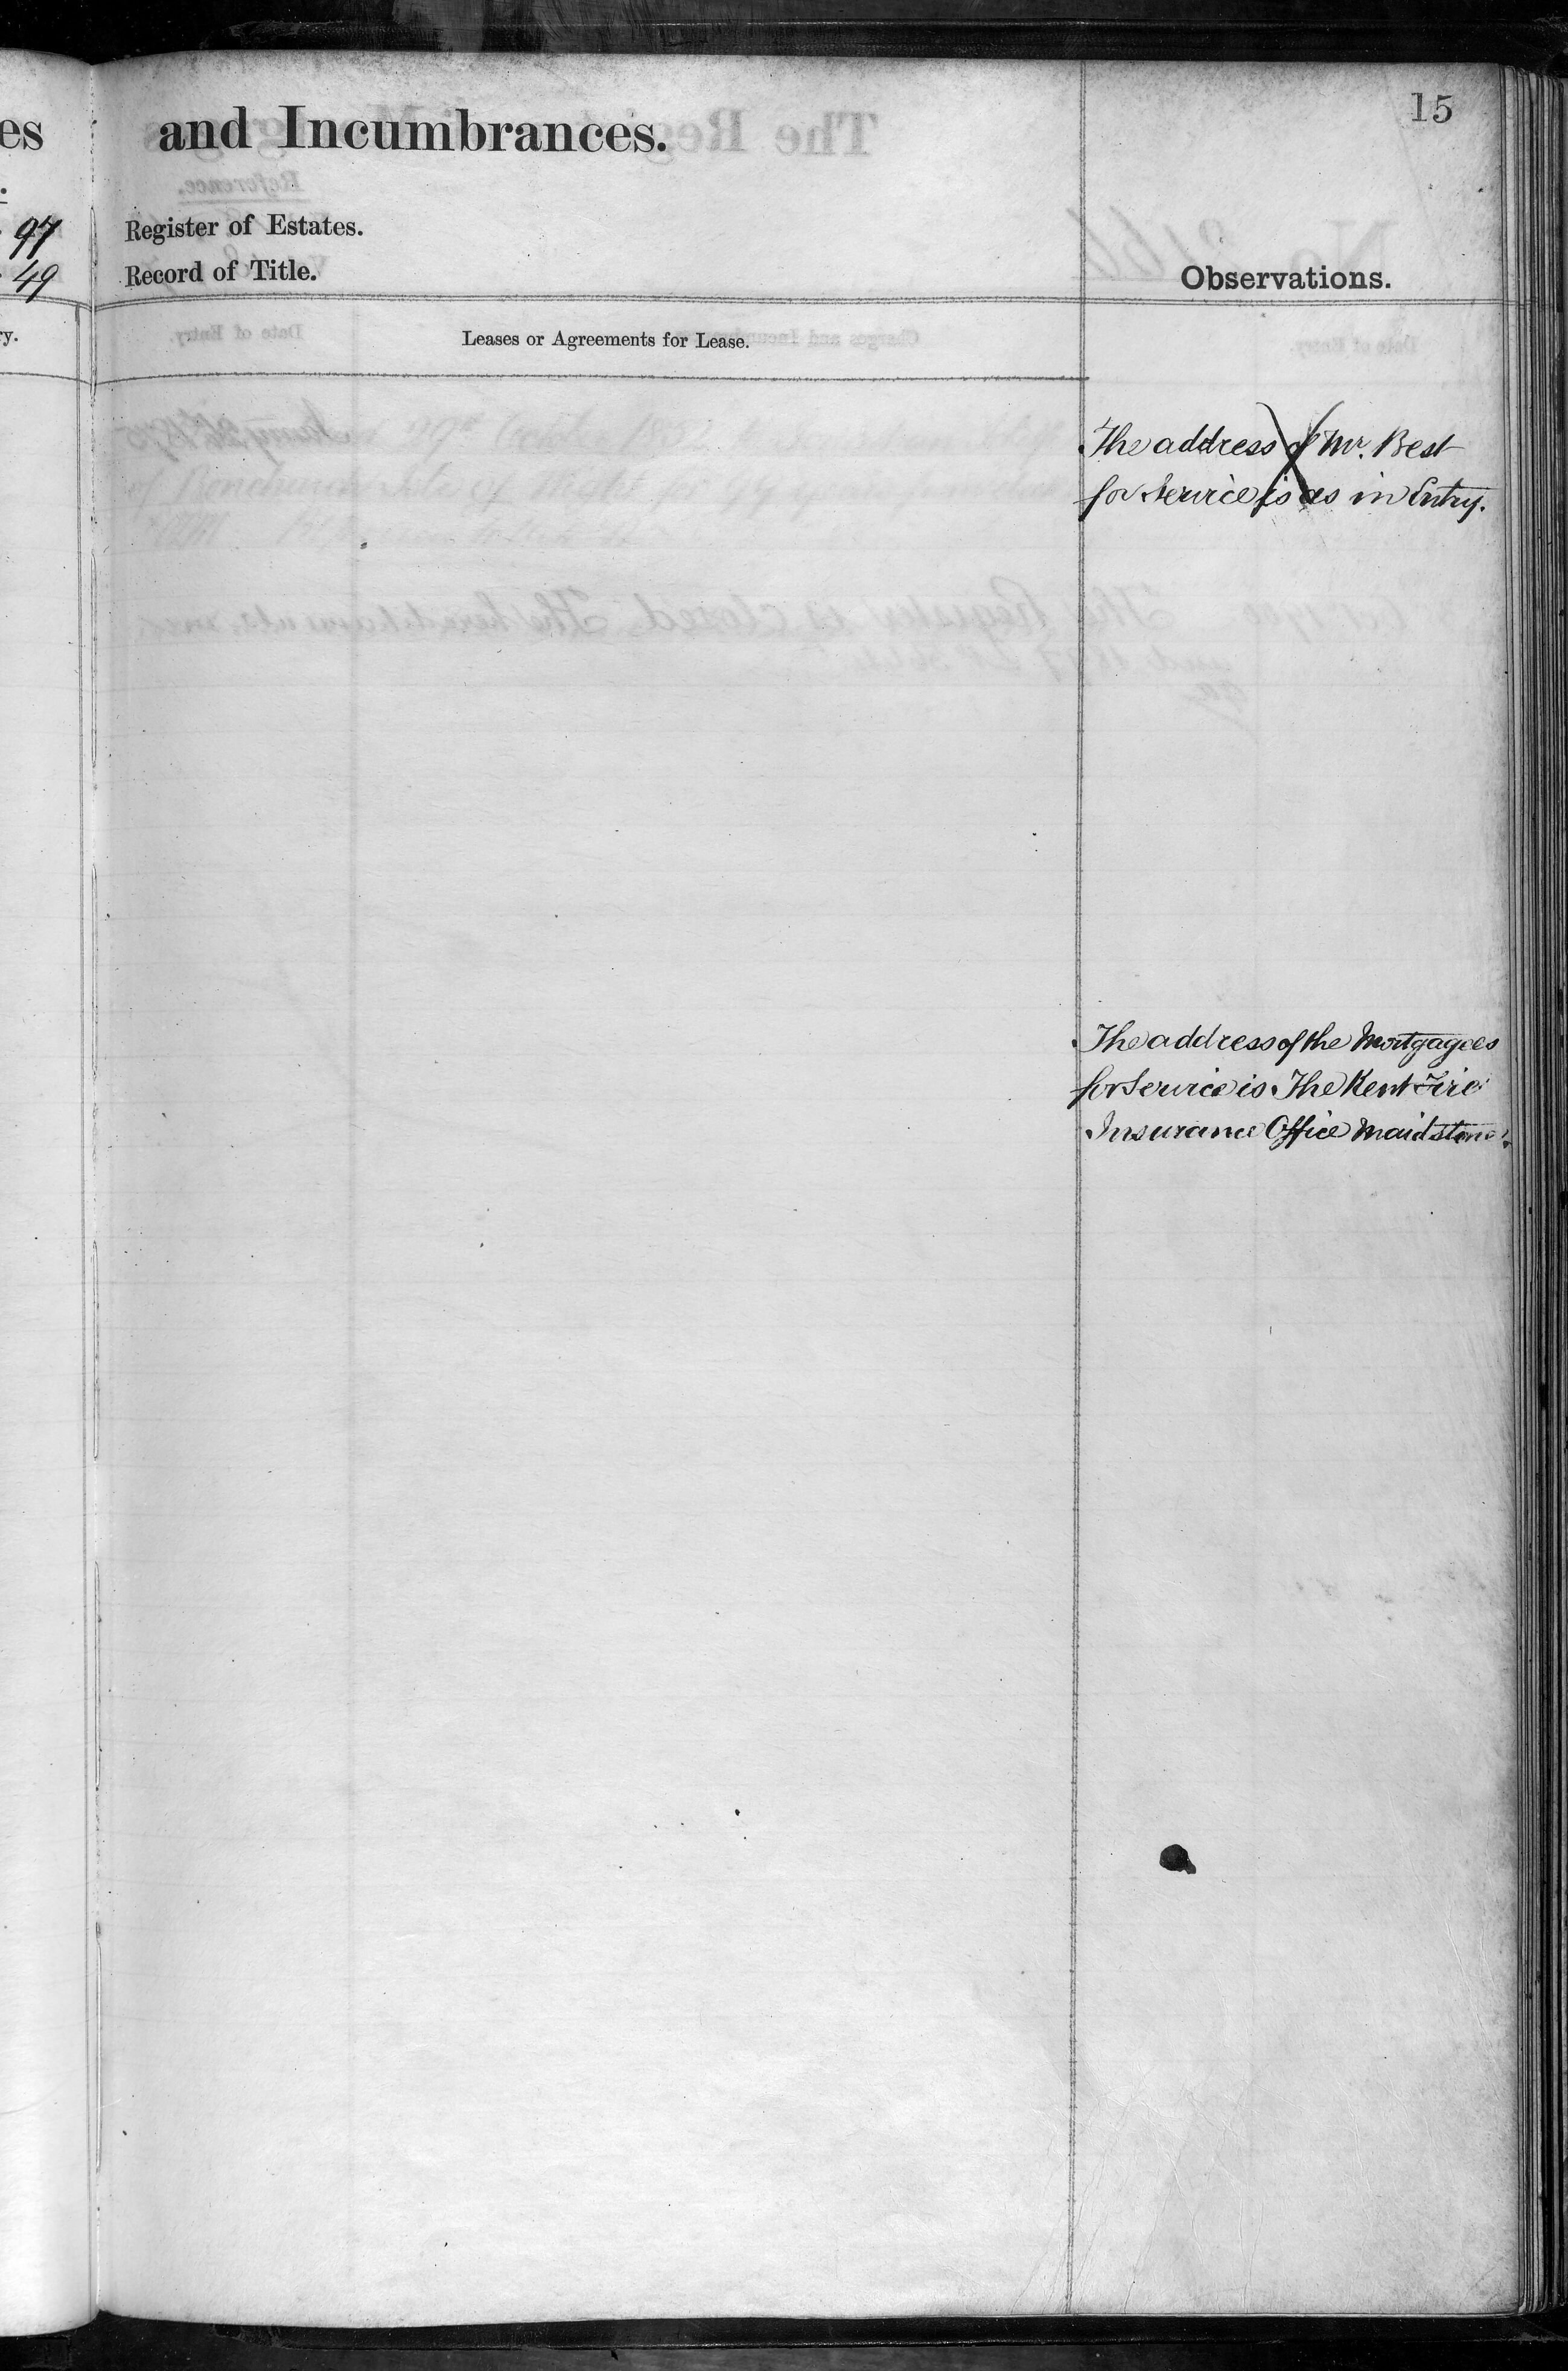 es
97
49
ry.
and Incumbrances.
15
Register of Estates.
Record of Title.
Observations.
Leases or Agreements for Lease.
The address of Mr. Best
for Service is as in Entry.
The address of the Mortgagees
for Service is The Kent Fire
Insurance Office Maidstone.